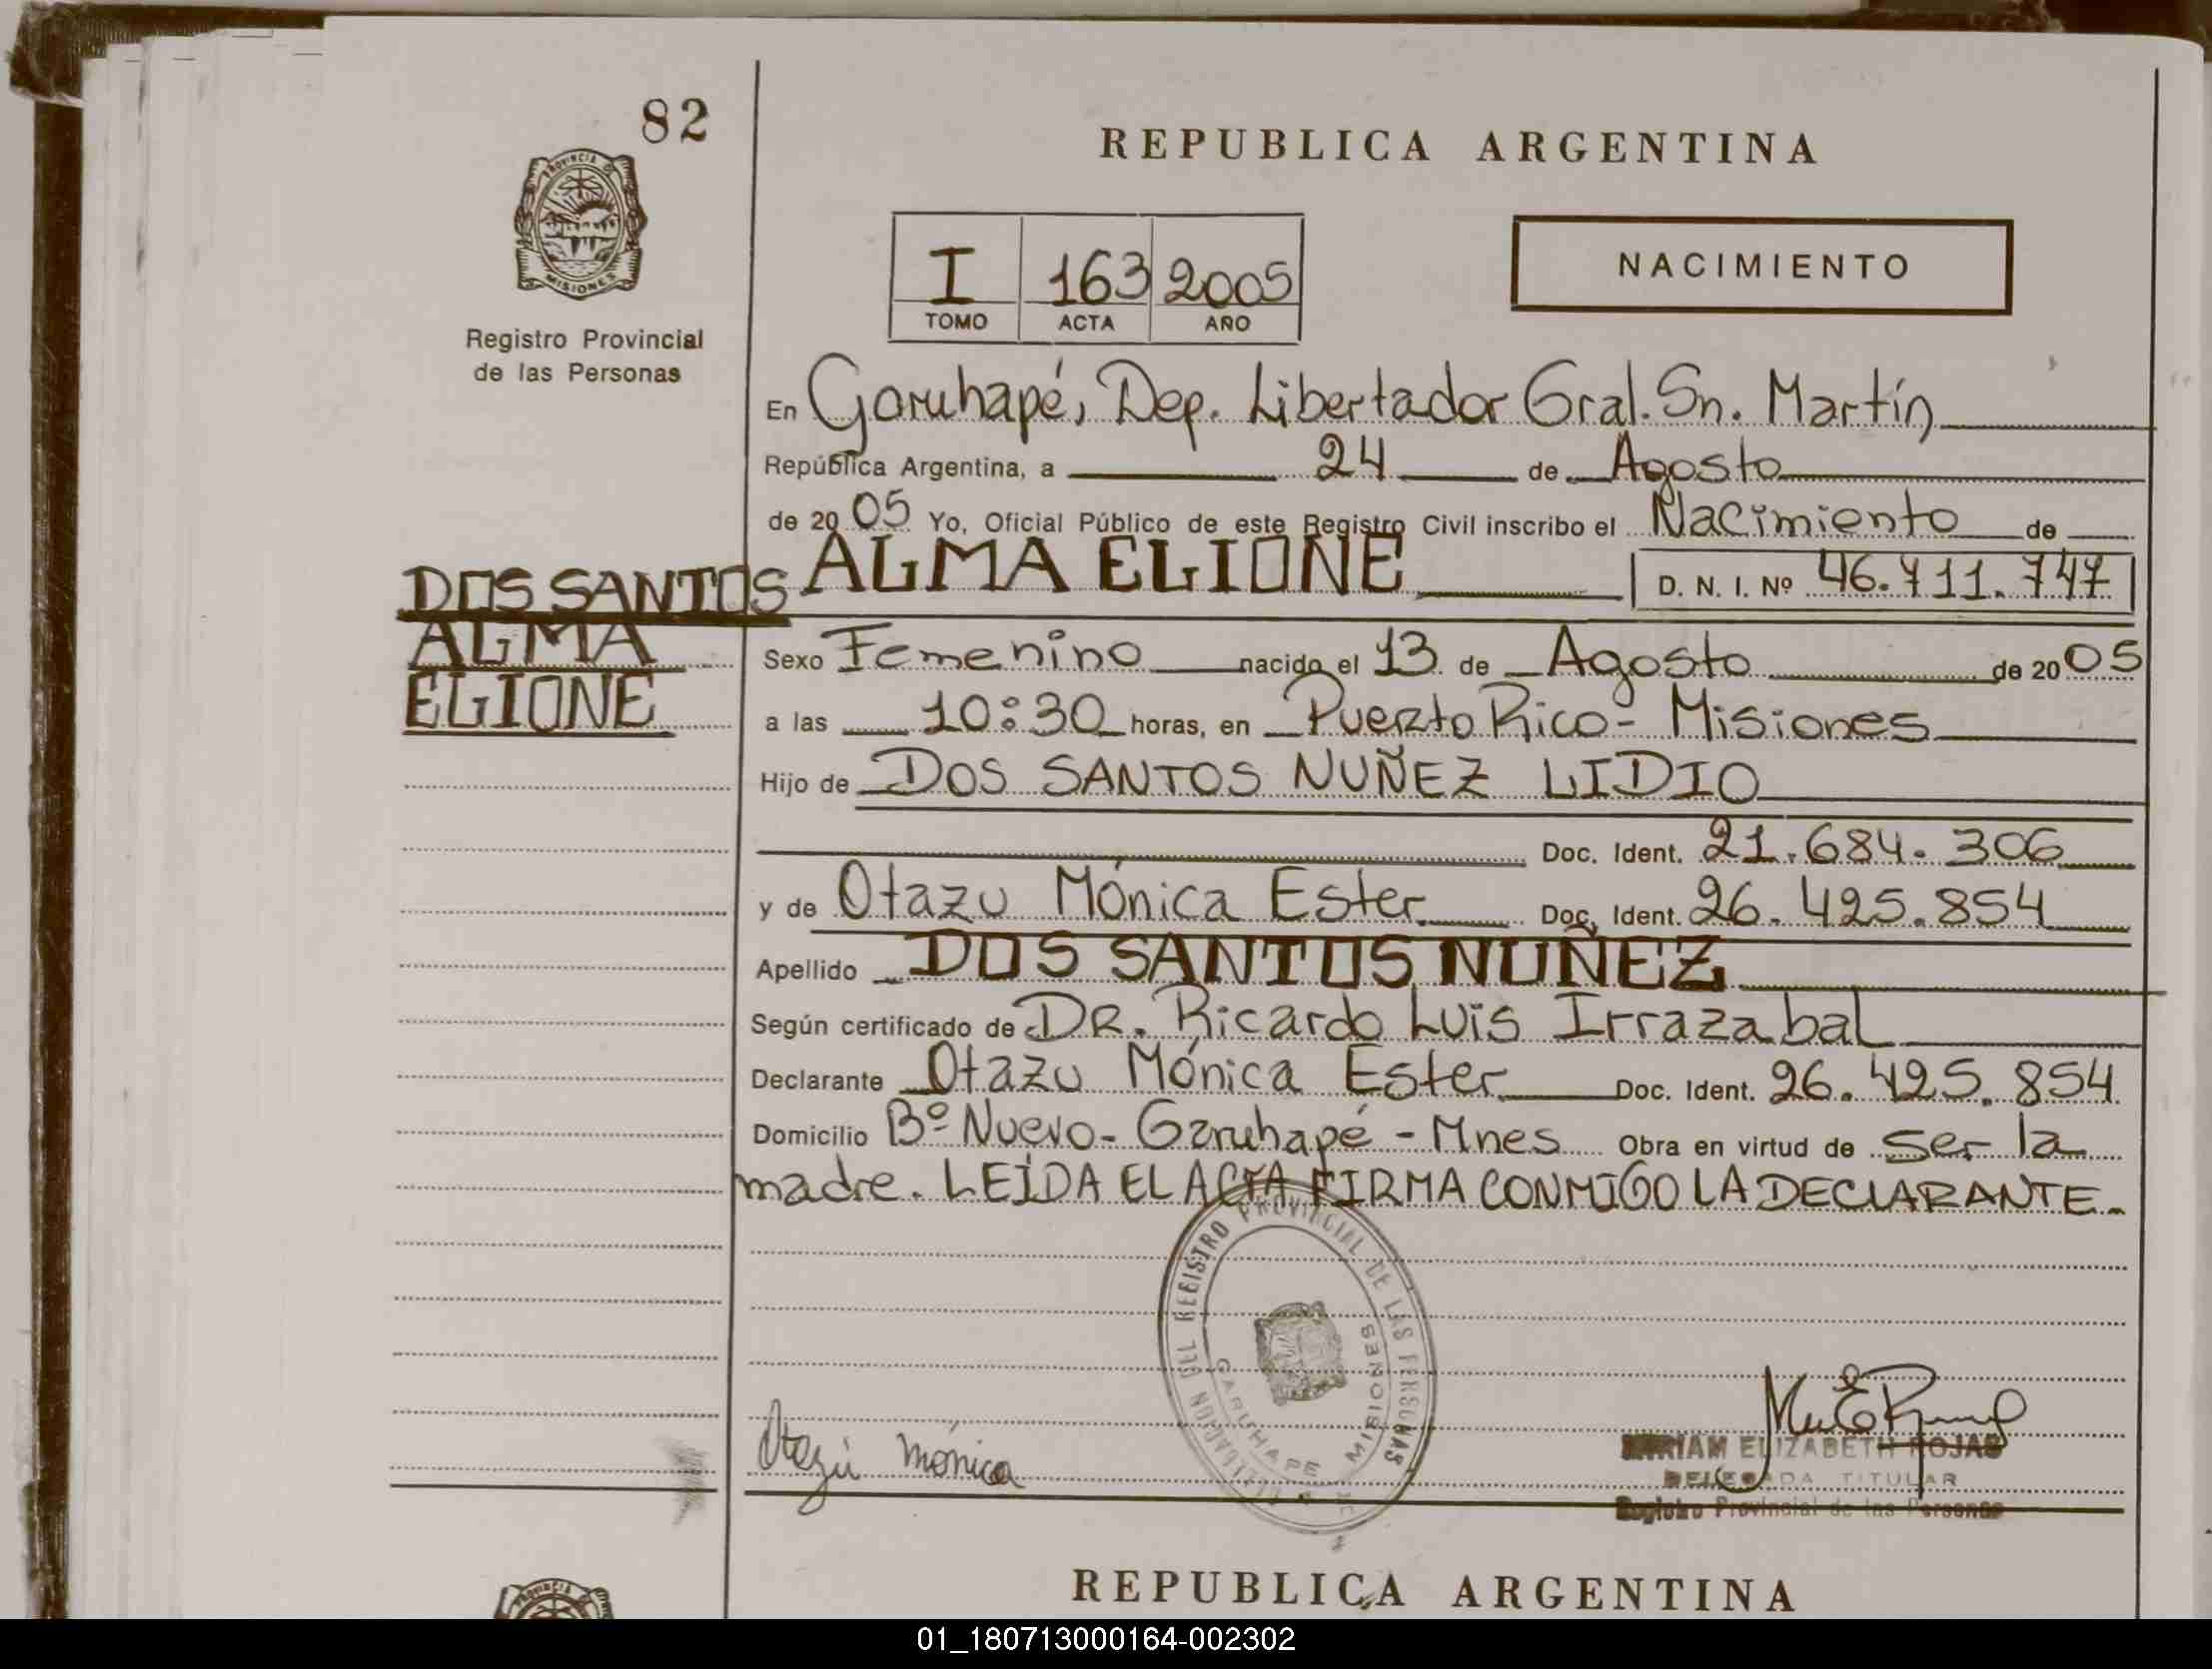 82
PROVINCIA DE
MISIONES
Registro Provincial
de las Personas
REPUBLICA ARGENTINA
I 163 2005
TOMO ACTA AÑO
NACIMIENTO
En Garuhapé, Dep. Libertador Gral. Sn. Martín
República Argentina, a 24 de Agosto
de 2005 Yo, Oficial Público de este Registro Civil inscribo el Nacimiento de
DOS SANTOS
ALMA
ELIONE
ALMA ELIONE D. N. I. Nº 46.711.747
Sexo Femenino nacido el 13 de Agosto de 2005
a las 10:30 horas, en Puerto Rico - Misiones
Hijo de DOS SANTOS NUÑEZ LIDIO
Doc. Ident. 21.684.306
y de Otazu Mónica Ester Doc. Ident. 26.425.854
Apellido DOS SANTOS NUÑEZ
Según certificado de DR. Ricardo Luis Irrazabal
Declarante Otazu Mónica Ester Doc. Ident. 26.425.854
Domicilio Bº Nuevo - Garuhapé - Mnes Obra en virtud de ser la
madre. LEÍDA EL ACTA FIRMA CONMIGO LA DECLARANTE.
DELEGACION DEL REGISTRO PROVINCIAL DE LAS PERSONAS
GARUHAPE MISIONES
Otazú mónica
MIRIAM ELIZABETH ROJAS
DELEGADA TITULAR
Registro Provincial de las Personas
REPUBLICA ARGENTINA
PROVINCIA
01_180713000164-002302